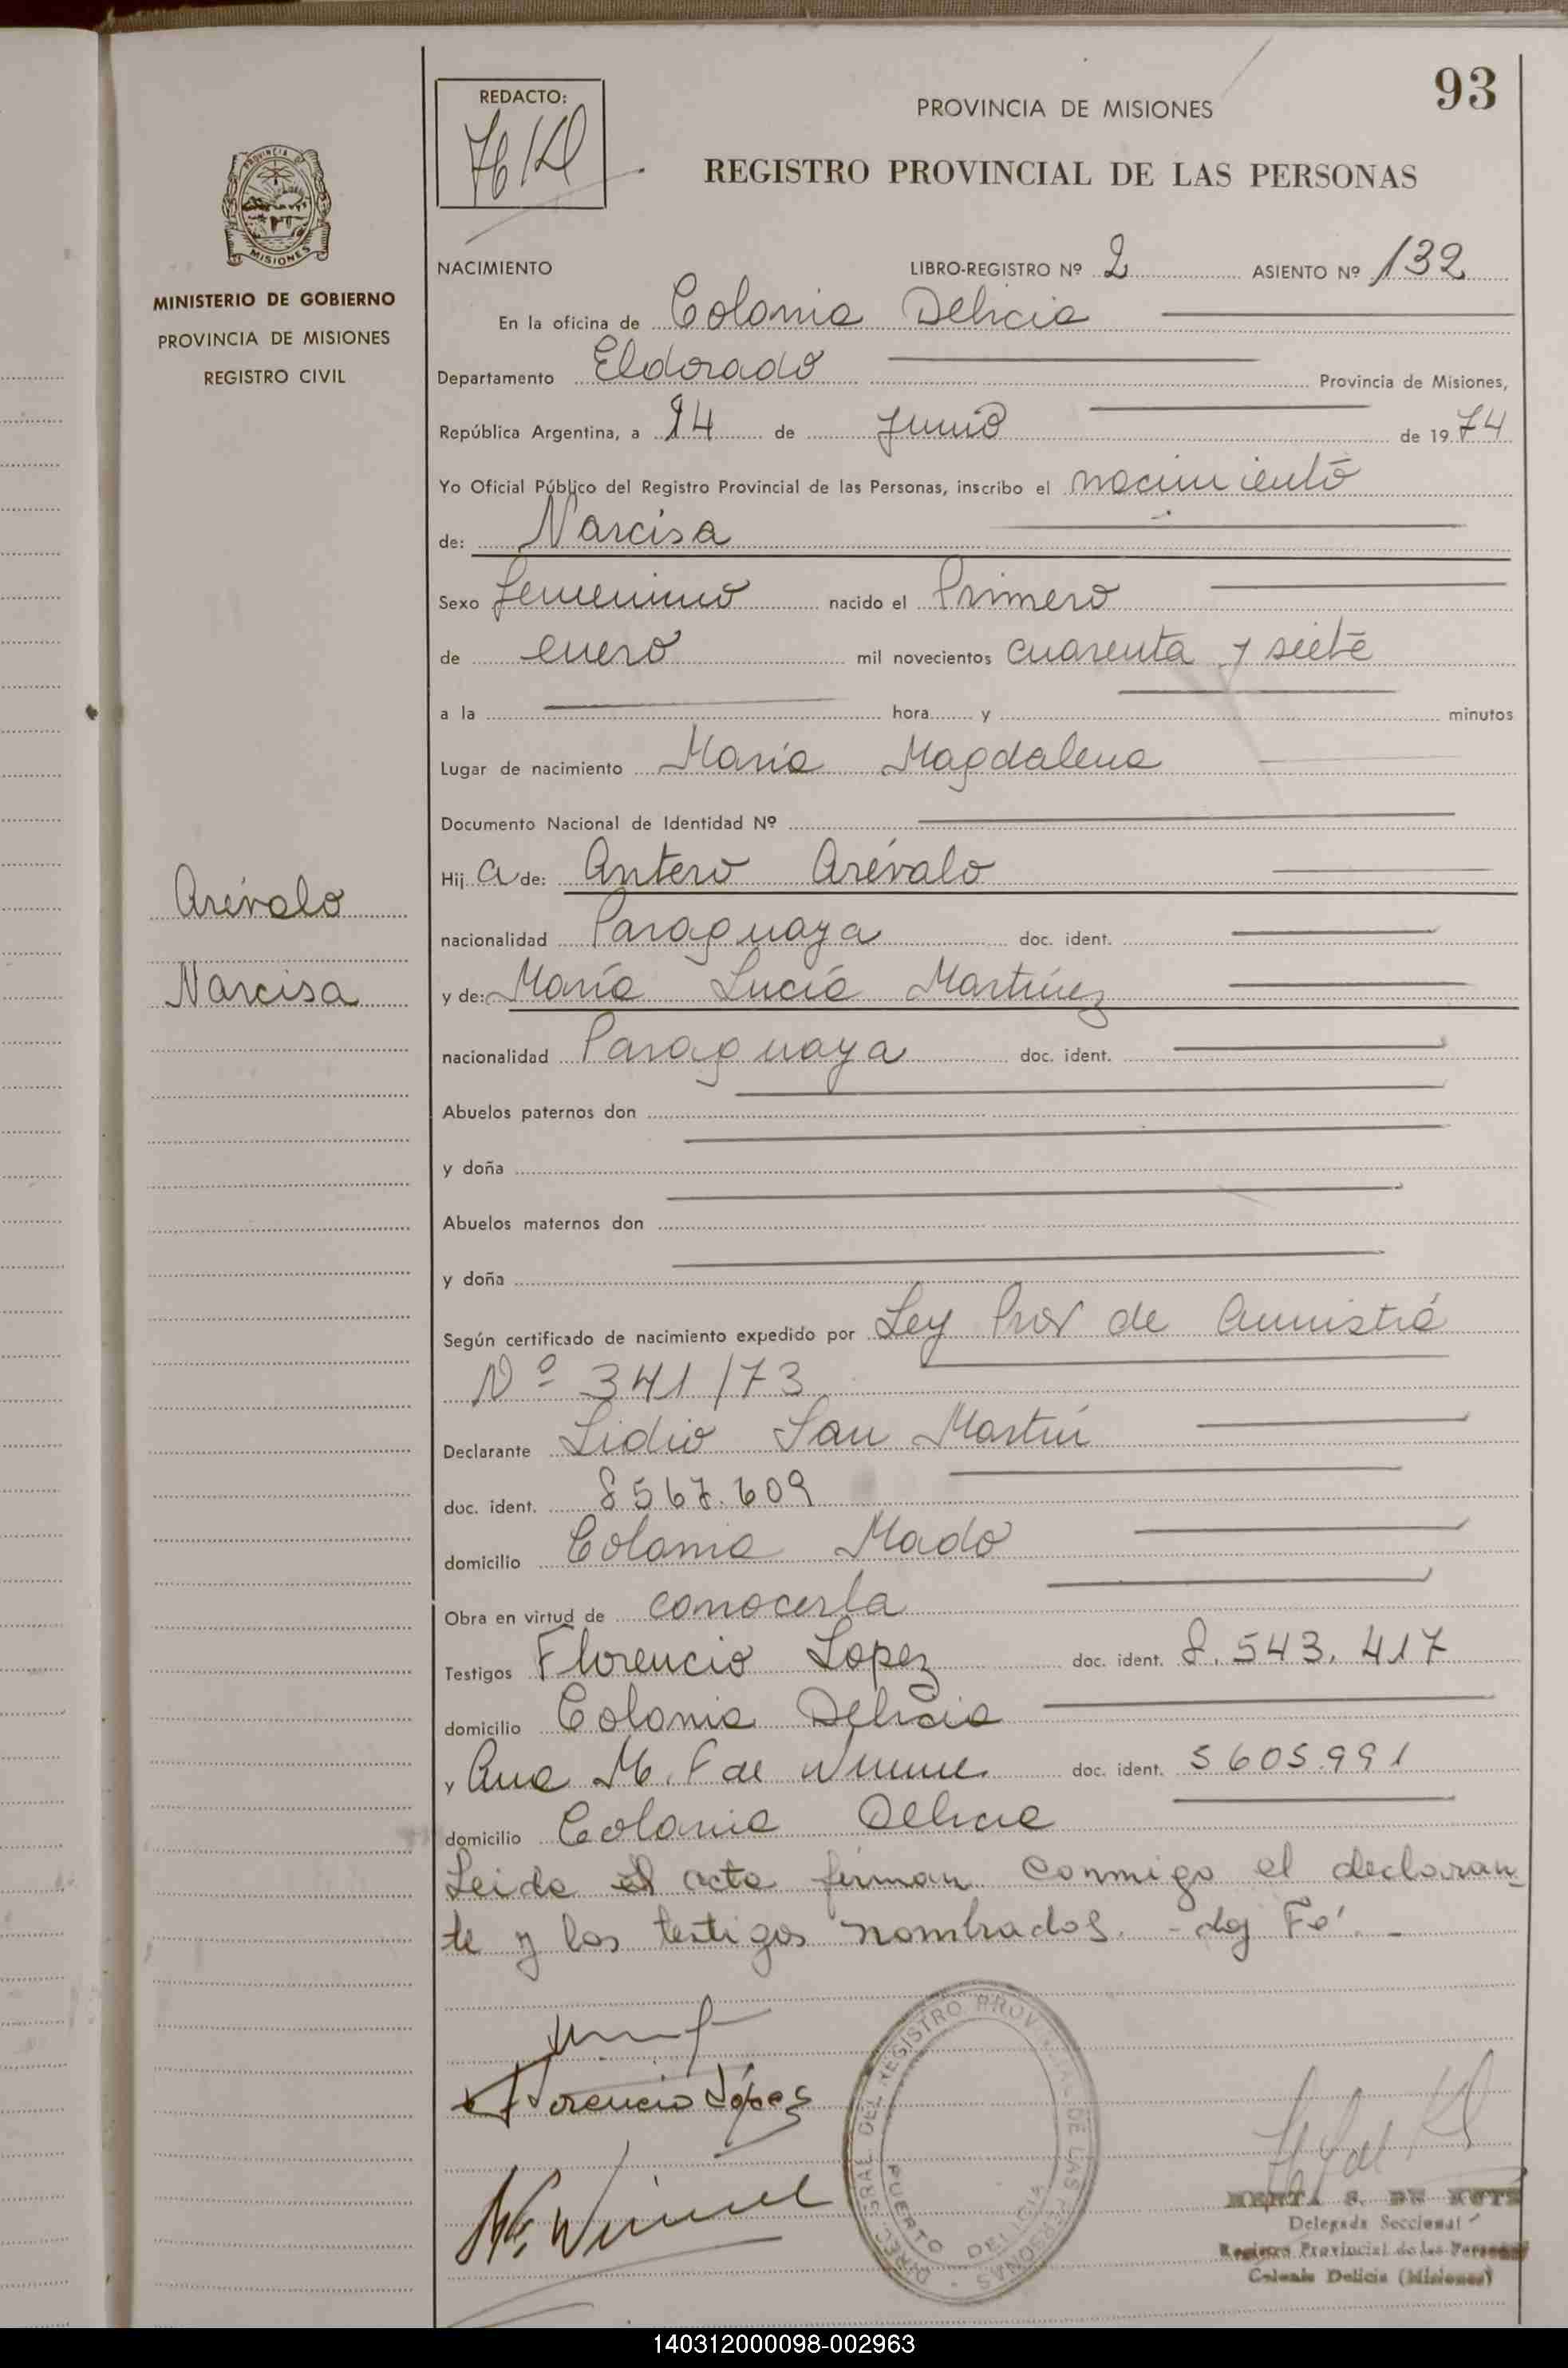 93
REDACTO:
PROVINCIA DE MISIONES
REGISTRO PROVINCIAL DE LAS PERSONAS
PROVINCIA DE
MISIONES
MINISTERIO DE GOBIERNO
PROVINCIA DE MISIONES
REGISTRO CIVIL
NACIMIENTO LIBRO-REGISTRO Nº 2 ASIENTO Nº 132
En la oficina de Colonia Delicia
Departamento Eldorado Provincia de Misiones,
República Argentina, a 14 de Junio de 1974
Yo Oficial Público del Registro Provincial de las Personas, inscribo el nacimiento
de: Narcisa
Sexo femenino nacido el Primero
de enero mil novecientos cuarenta y siete
a la hora y minutos
Lugar de nacimiento María Magdalena
Documento Nacional de Identidad Nº
Hij a de: Antero Arévalo
Arévalo
nacionalidad Paraguaya doc. ident.
Narcisa
y de: María Lucía Martínez
nacionalidad Paraguaya doc. ident.
Abuelos paternos don
y doña
Abuelos maternos don
y doña
Según certificado de nacimiento expedido por Ley Prov de Amnistía
Nº 341/73
Declarante Lidio San Martín
doc. ident. 8567.609
domicilio Colonia Mado
Obra en virtud de conocerla
Testigos Florencio Lopez doc. ident. 8.543.417
domicilio Colonia Delicia
y Ana M. F de doc. ident. 5605.991
domicilio Colonia Delicia
Leida el acta firman conmigo el declaran-
te y los testigos nombrados. - doy Fé. -
Florencio López
DIREC. GRAL. DEL REGISTRO PROVINCIAL DE LAS PERSONAS
PUERTO DELICIA
HERTA S. DE
Delegada Seccional
Registro Provincial de las Personas
Colonia Delicia (Misiones)
140312000098-002963